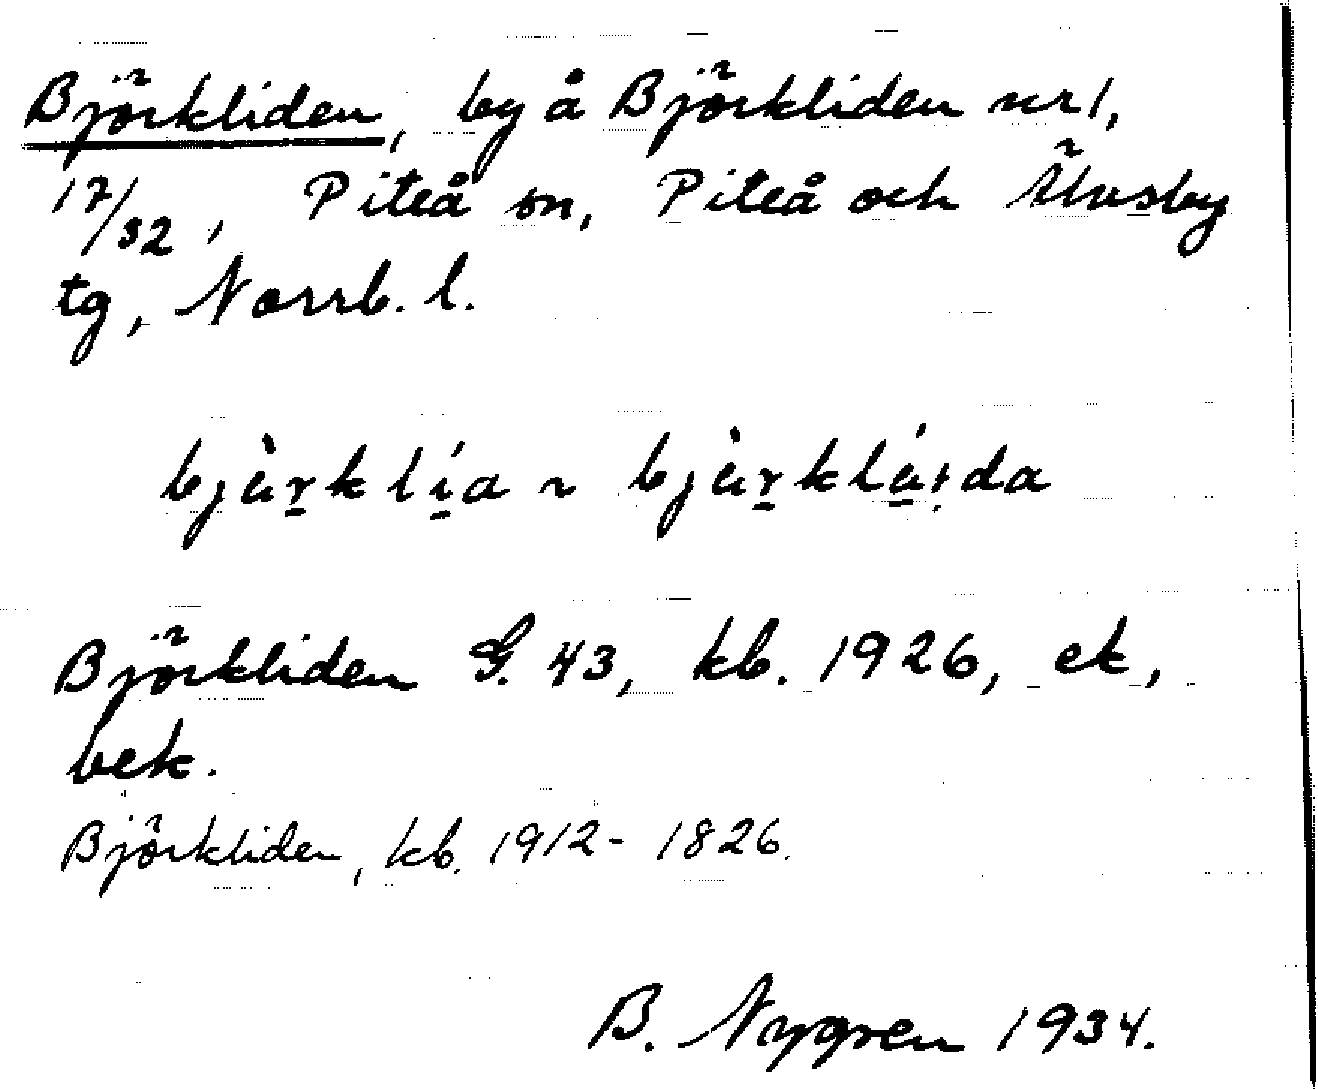 Björkliden, by å Björkliden nr 1,
17/32, Piteå sn, Piteå och Älvsby
tg, Norrb. l.
bjùrklía ~ bjùrklúda
Björkliden G. 43, kb. 1926, ek,
bek.
Björkliden, kb. 1912-1826.
B. Nygren 1934.